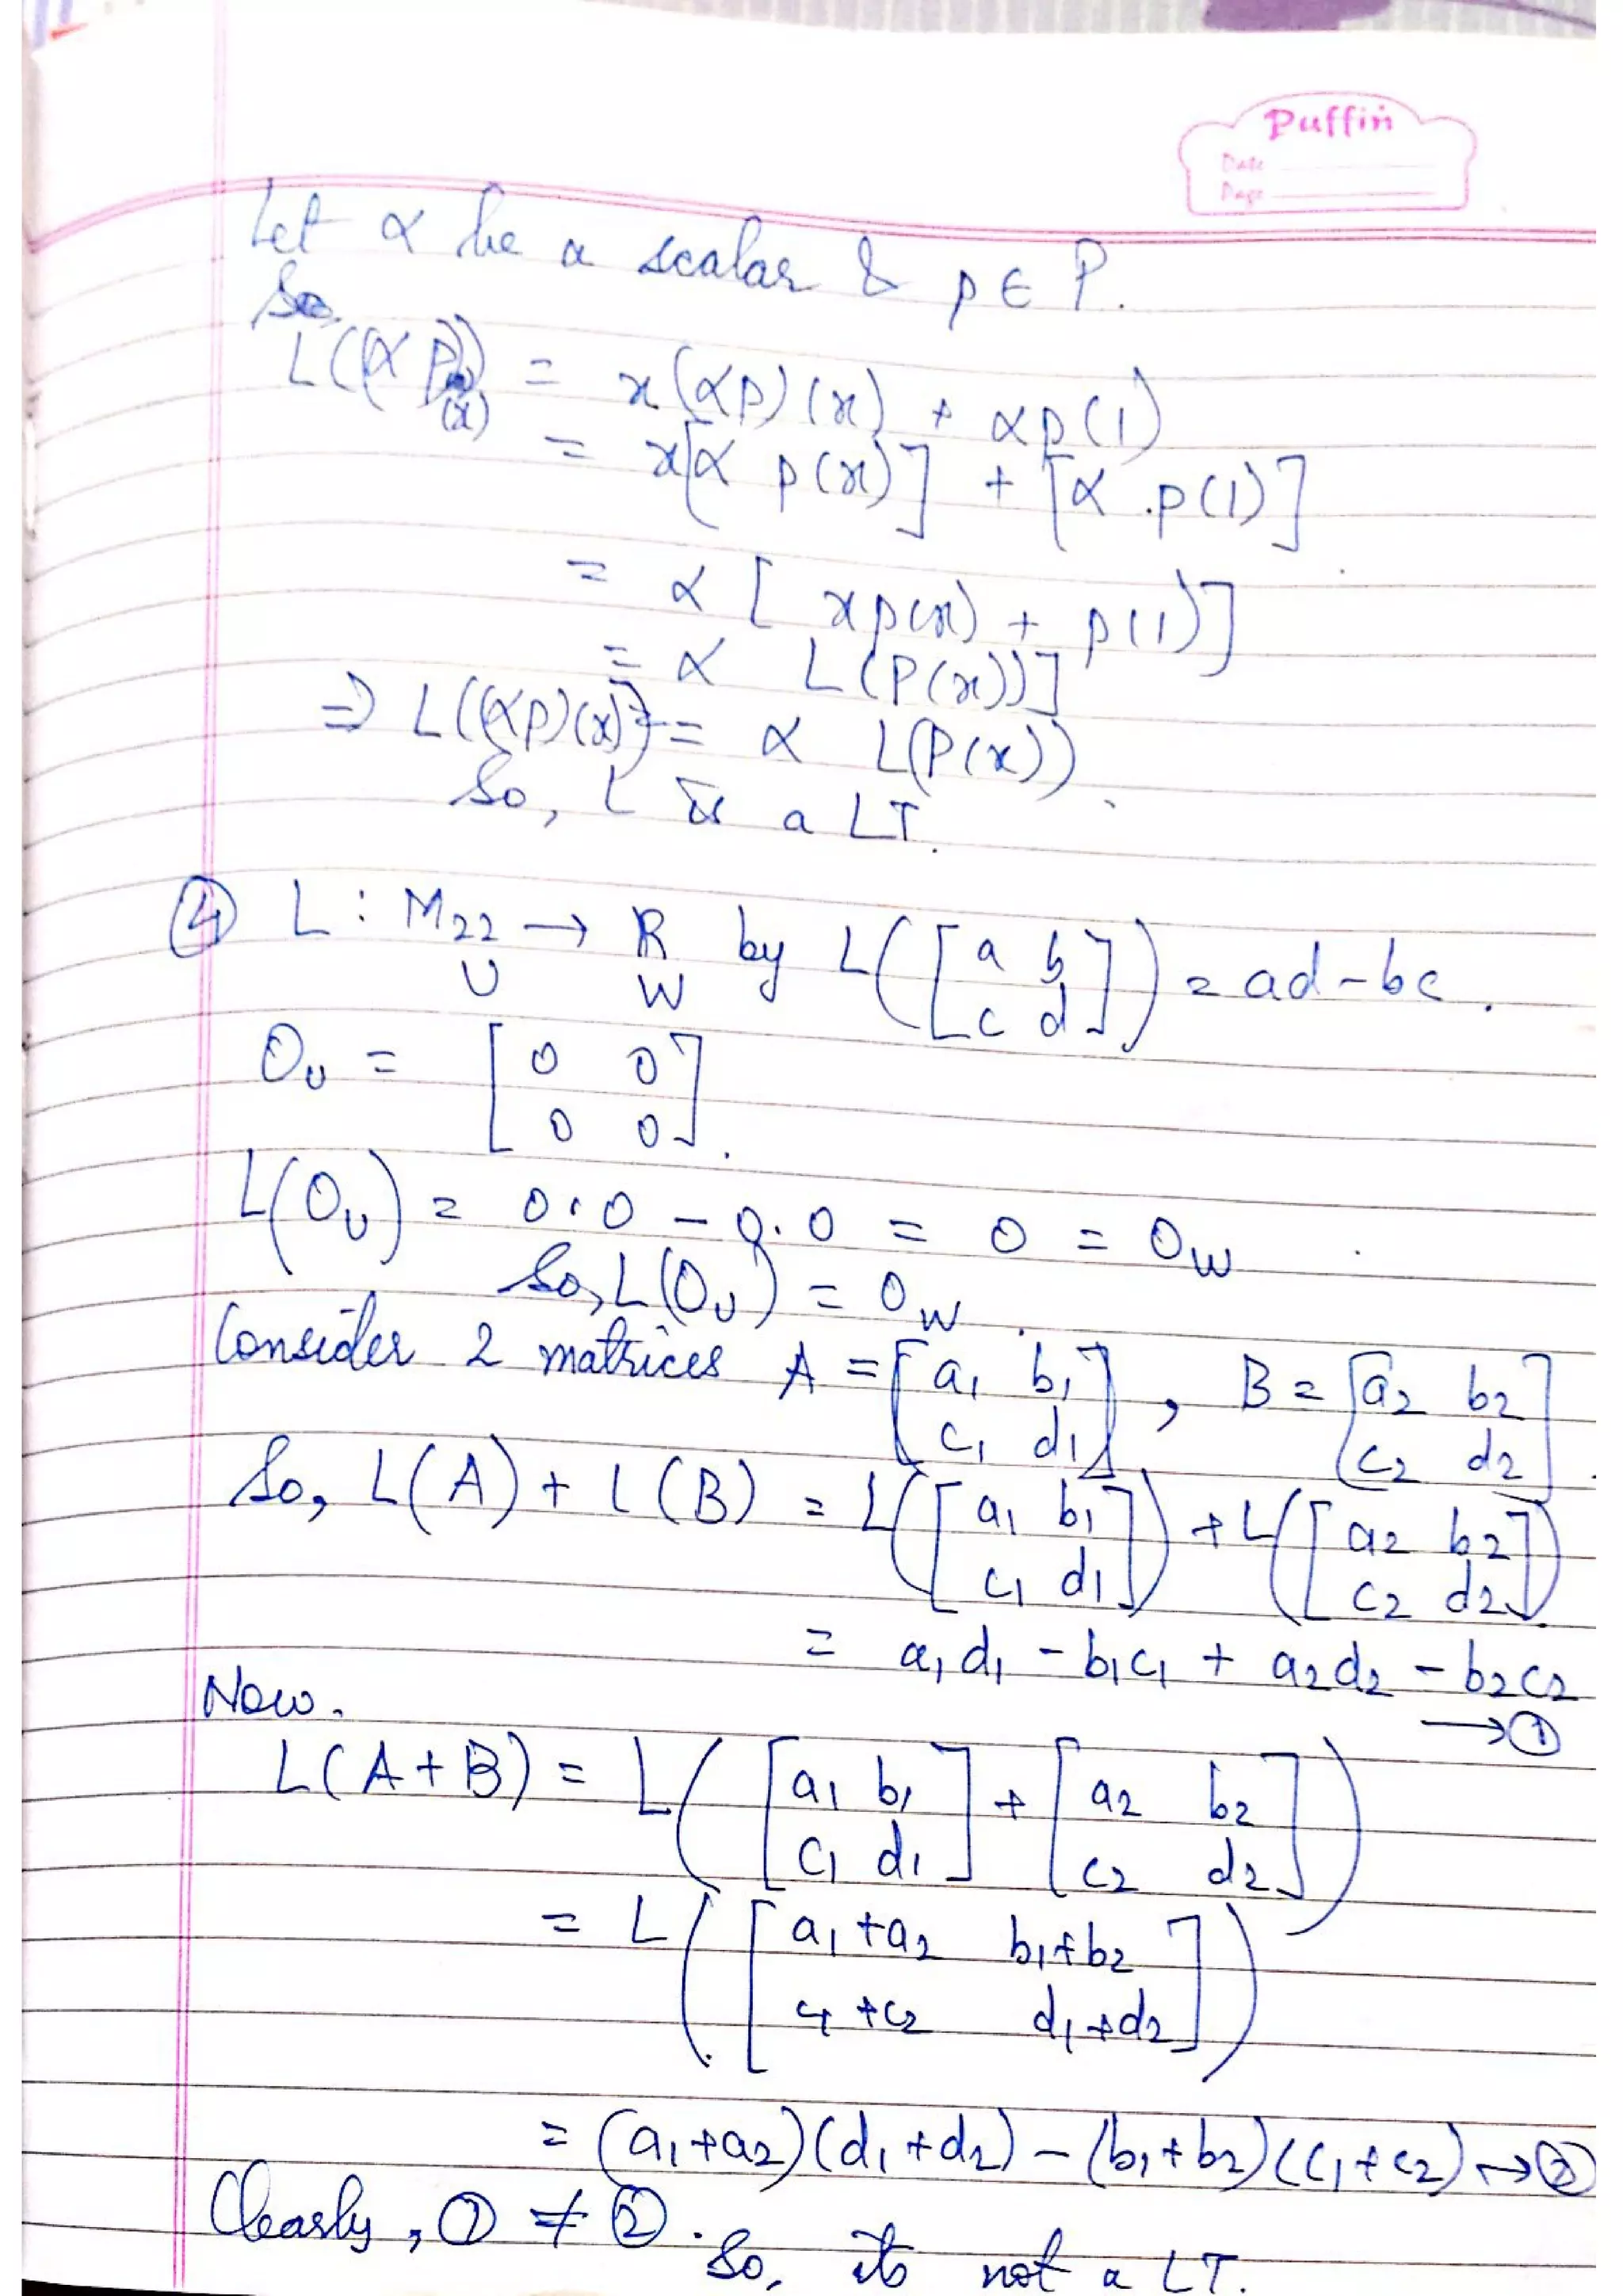 Puffin
Date
Page
Let α be a scalar & p ∈ P.
So
L((αp)(x)) = x(αp)(x) + αp(1)
= x[α p(x)] + [α .p(1)]
= α [ xp(x) + p(1)]
= α L(P(x))]
⇒ L((αp)(x)) = α L(P(x)).
So, L is a LT.
④ L : M₂₂ → R by L([a b
c d]) = ad - bc.
U W
O_U = [0 0
0 0].
L(O_U) = 0.0 - 0.0 = 0 = O_W
So, L(O_U) = O_W.
Consider 2 matrices A = [a₁ b₁
c₁ d₁], B = [a₂ b₂
c₂ d₂].
So, L(A) + L(B) = L([a₁ b₁
c₁ d₁]) + L([a₂ b₂
c₂ d₂])
= a₁d₁ - b₁c₁ + a₂d₂ - b₂c₂
→ ①
Now.
L(A+B) = L([a₁ b₁
c₁ d₁] + [a₂ b₂
c₂ d₂])
= L([a₁+a₂ b₁+b₂
c₁+c₂ d₁+d₂])
= (a₁+a₂)(d₁+d₂) - (b₁+b₂)(c₁+c₂) → ②
Clearly, ① ≠ ②.
So, its not a LT.